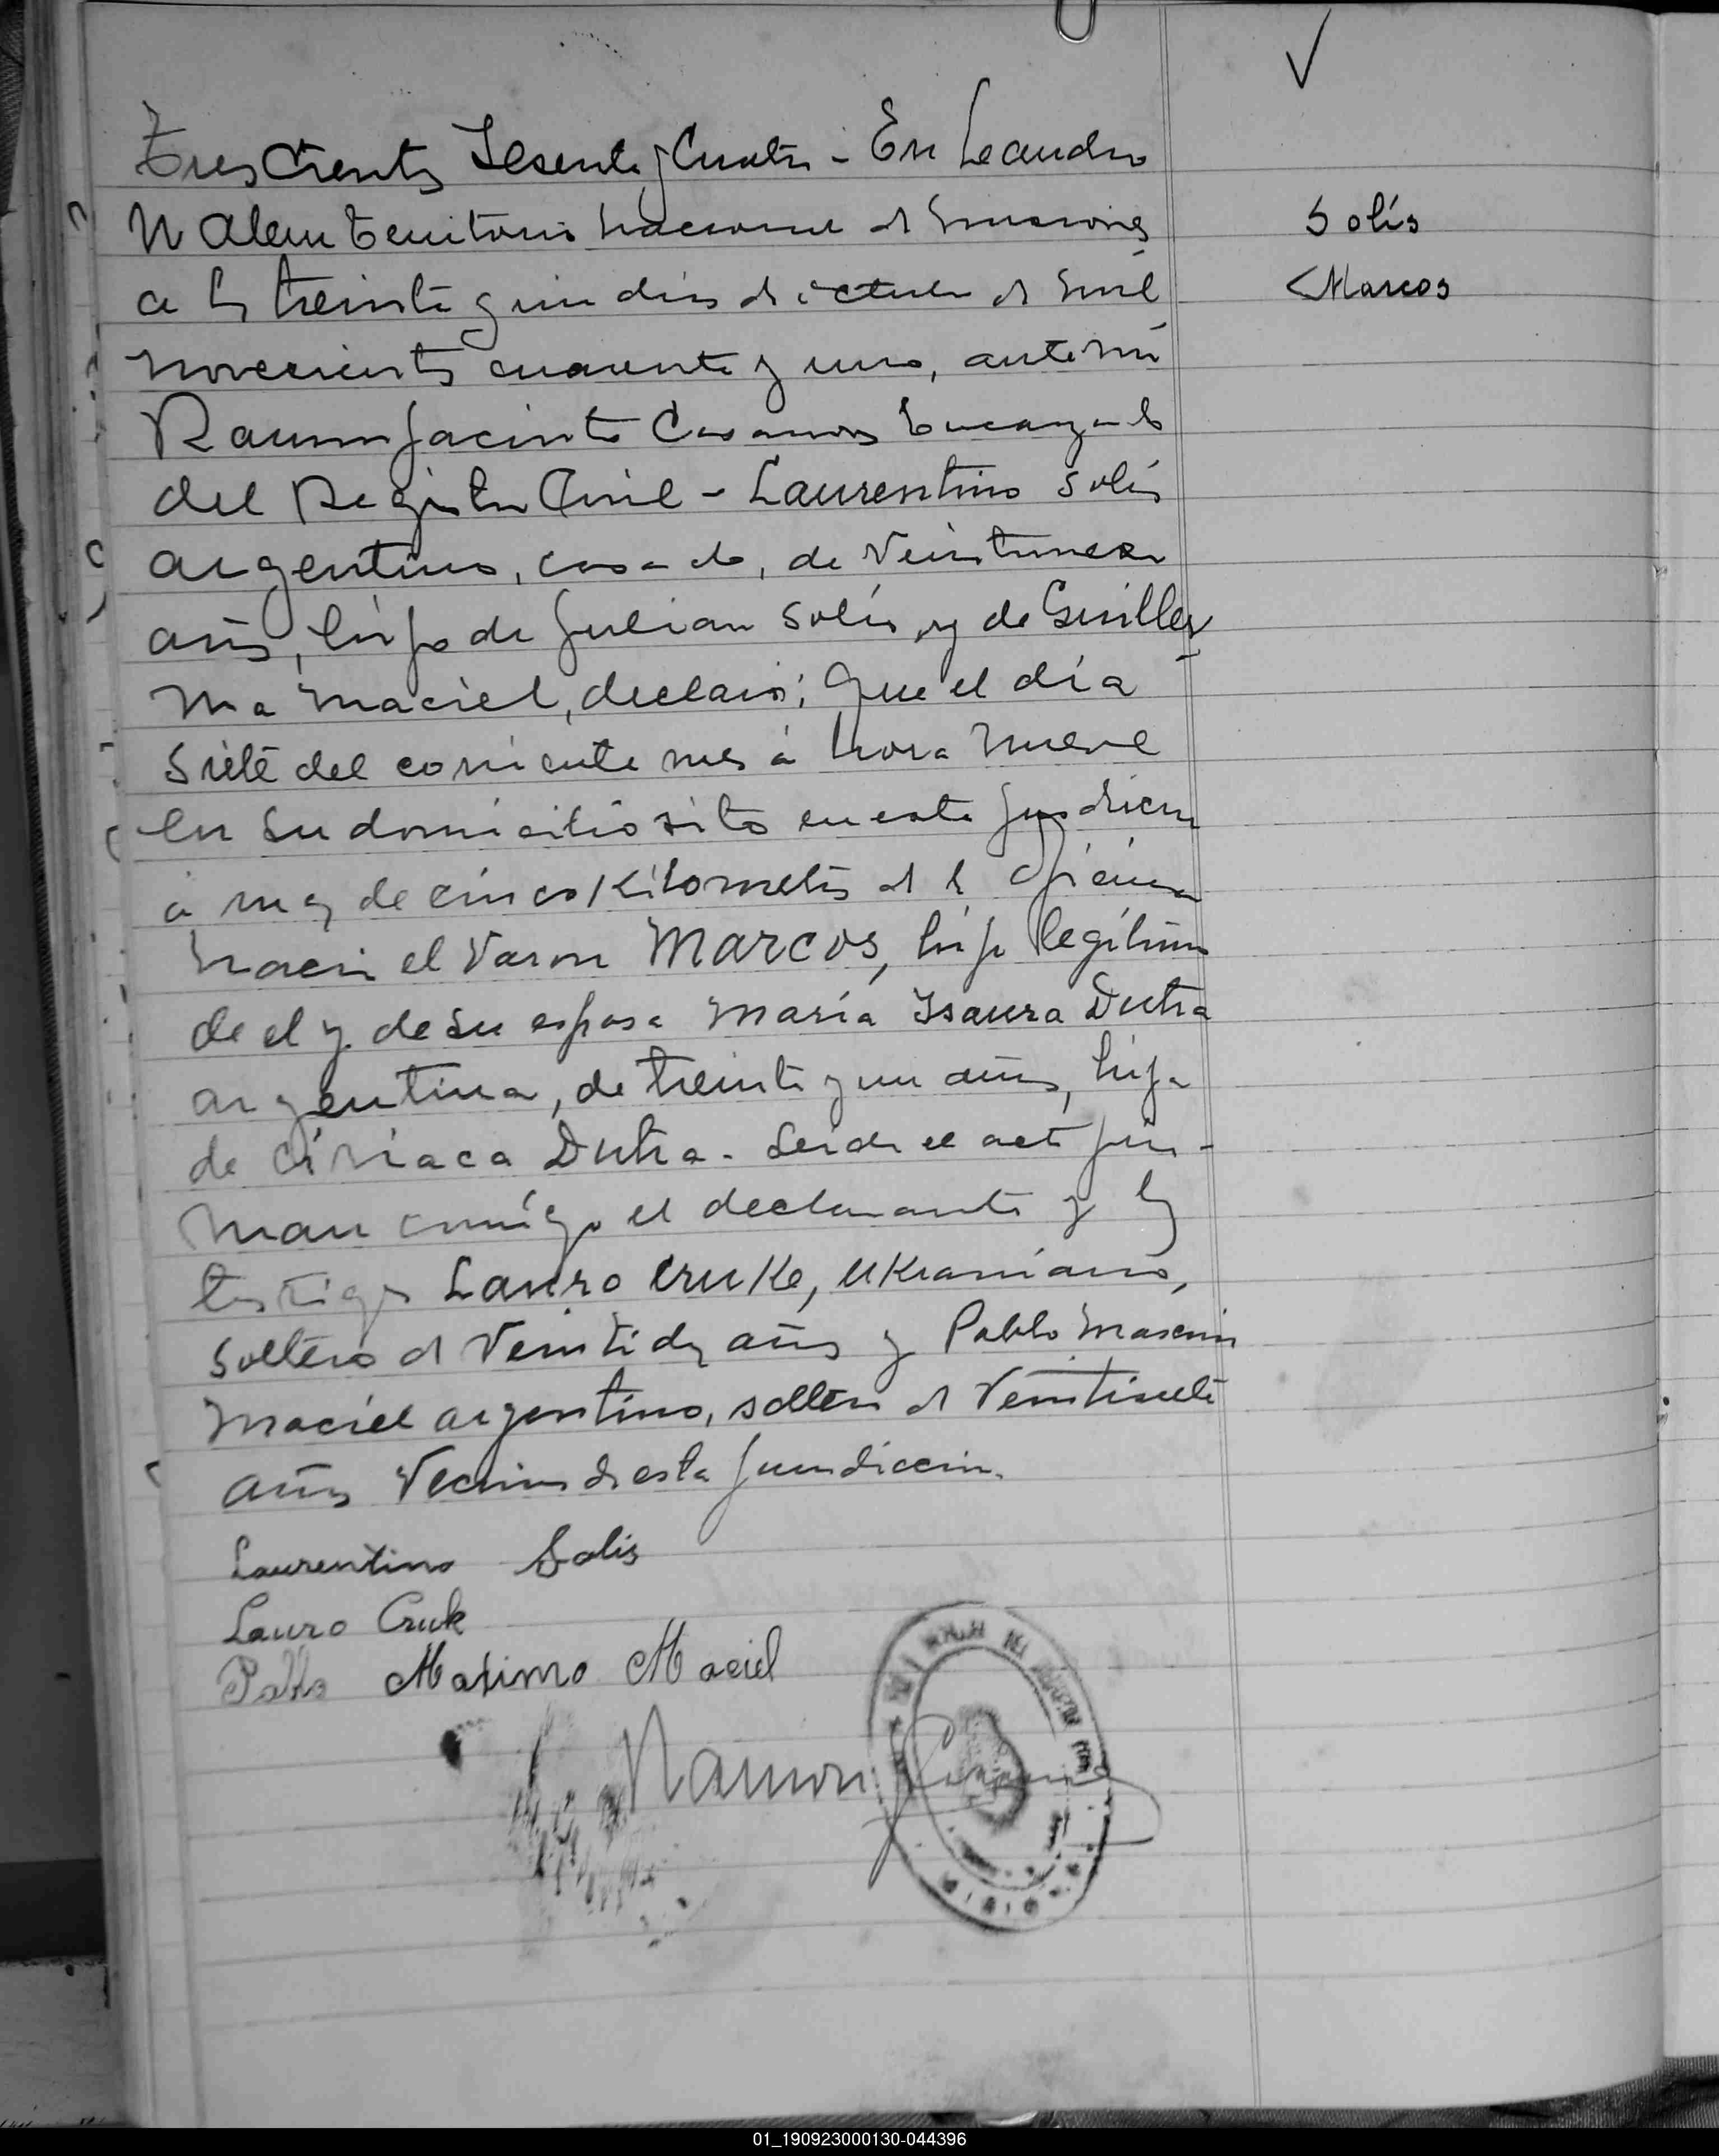 Trescientos Sesenta y Cuatro - En Leandro
Solís
N Alem Territorio Nacional de Misiones
Marcos
a los treinta y un dias de octubre de mil
novecientos cuarenta y uno, ante mi
Ramon Jacinto Casanova Encargado
del Registro Civil - Laurentino Solis
argentino, casado, de Veintinueve
años, hijo de Julian Solis, y de Guiller
ma Maciel, declaró; Que el día
siete del corriente mes á hora nueve
en su domicilio sito en esta jurisdiccion
á mas de cinco Kilometros de la oficina
nació el Varon MARCOS, hijo legítimo
de el y de su esposa María Isaura Dutra
argentina, de treinta y un años, hija
de Ciriaca Dutra. Leida el acta fir-
man conmígo el declarante y los
testigos Lauro Cruke, Ukraniano,
soltero de Veintidos años y Pablo Maximo
Maciel argentino, soltero de Veintisiete
años Vecinos de esta jurisdiccion.
Laurentino Solis
Lauro Cruk
Pablo Maximo Maciel
Ramon J
01_190923000130-044396